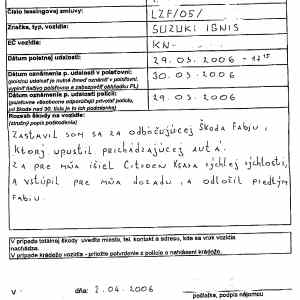 Číslo leasingovej zmluvy: LZF/05/
Značka, typ vozidla: SUZUKI IGNIS
EČ vozidla: KN-
Dátum poistnej udalosti: 29.03.2006 - 17 15
Dátum oznámenia p. udalosti v poisťovni: 30.03.2006
(poistnú udalosť je nutné ihneď oznámiť v poisťovni,
vyplniť tlačivo poisťovne a zabezpečiť obhliadku PZ)
Dátum oznámenia p. udalosti polícii: 29.03.2006
Rozsah škody na vozidle:
(stručný popis poškodenia)
ZASTAVIL SOM SA ZA ODBOČUJÚCEJ ŠKODA FABIU,
KTORÝ UPUSTIL PRICHÁDZAJÚCEJ AUTÁ.
ZA PRE MŇA IŠIEL CITROEN KSARA RÝCHLEJ RÝCHLOSTI,
A VSTÚPIL PRE MŇA DOZADU, A ODLOŽIL PREDTÝM
FABIU.
V prípade totálnej škody uveďte miesto, tel. kontakt a adresu, kde sa vrak vozidla
nachádza.
V prípade krádeže vozidla - priložte potvrdenie z polície o nahlásení krádeže.
V dňa: 2.04.2006
pečiatka, podpis nájomcu